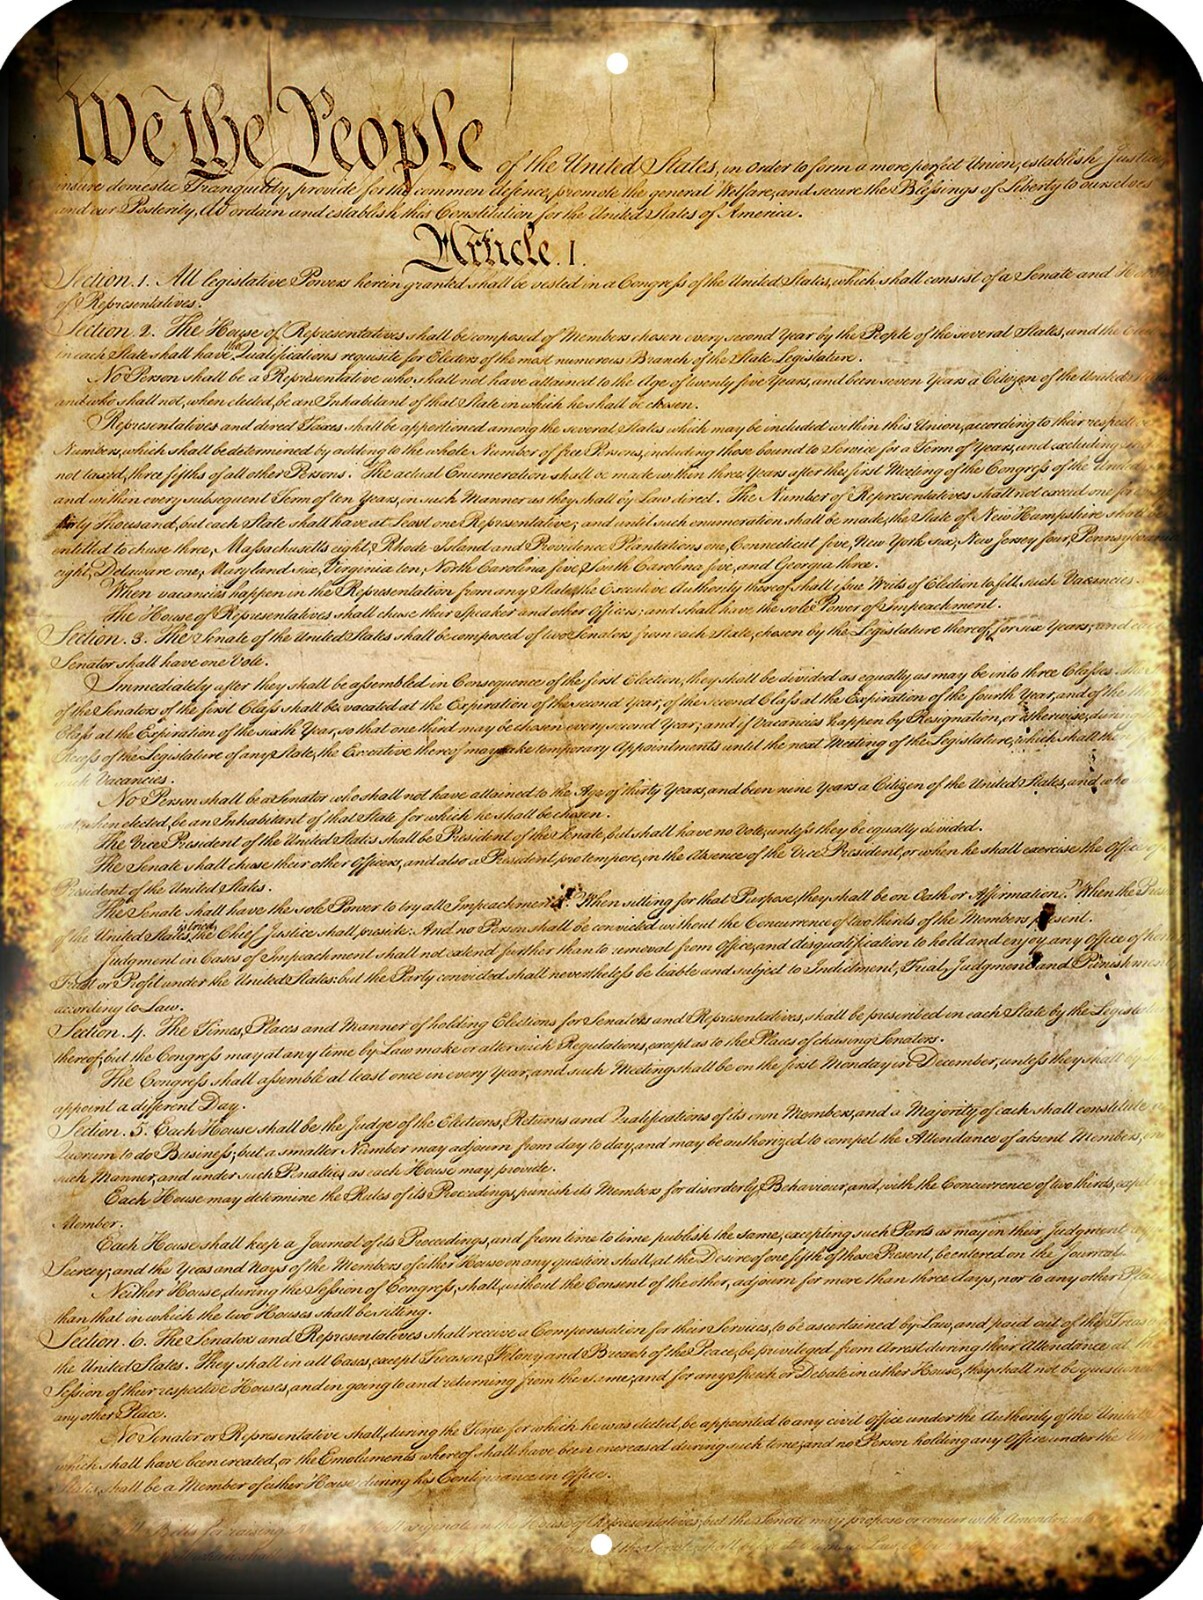 We the People of the United States, in Order to form a more perfect Union, establish Justice,
insure domestic Tranquility, provide for the common defence, promote the general Welfare, and secure the Blessings of Liberty to ourselves
and our Posterity, do ordain and establish this Constitution for the United States of America.
Article. I.
Section. 1. All legislative Powers herein granted shall be vested in a Congress of the United States, which shall consist of a Senate and House
of Representatives.
Section. 2. The House of Representatives shall be composed of Members chosen every second Year by the People of the several States, and the
in each State shall have the Qualifications requisite for Electors of the most numerous Branch of the State Legislature.
No Person shall be a Representative who shall not have attained to the Age of twenty five Years, and been seven Years a Citizen of the United
and who shall not, when elected, be an Inhabitant of that State in which he shall be chosen.
Representatives and direct Taxes shall be apportioned among the several States which may be included within this Union, according to their respective
Numbers, which shall be determined by adding to the whole Number of free Persons, including those bound to Service for a Term of Years, and excluding
not taxed, three fifths of all other Persons. The actual Enumeration shall be made within three Years after the first Meeting of the Congress of the United
and within every subsequent Term of ten Years, in such Manner as they shall by Law direct. The Number of Representatives shall not exceed one for
thirty Thousand, but each State shall have at Least one Representative; and until such enumeration shall be made, the State of New Hampshire shall be
entitled to chuse three, Massachusetts eight, Rhode Island and Providence Plantations one, Connecticut five, New York six, New Jersey four, Pennsylvania
eight, Delaware one, Maryland six, Virginia ten, North Carolina five, South Carolina five, and Georgia three.
When vacancies happen in the Representation from any State, the Executive Authority thereof shall issue Writs of Election to fill such Vacancies.
The House of Representatives shall chuse their Speaker and other Officers; and shall have the sole Power of Impeachment.
Section. 3. The Senate of the United States shall be composed of two Senators from each State, chosen by the Legislature thereof, for six Years; and each
Senator shall have one Vote.
Immediately after they shall be assembled in Consequence of the first Election, they shall be divided as equally as may be into three Classes.
of the Senators of the first Class shall be vacated at the Expiration of the second Year, of the second Class at the Expiration of the fourth Year, and of the
Class at the Expiration of the sixth Year, so that one third may be chosen every second Year; and if Vacancies happen by Resignation, or otherwise, during
Recess of the Legislature of any State, the Executive thereof may make temporary Appointments until the next Meeting of the Legislature, which shall
such Vacancies.
No Person shall be a Senator who shall not have attained to the Age of thirty Years, and been nine Years a Citizen of the United States, and who
not, when elected, be an Inhabitant of that State for which he shall be chosen.
The Vice President of the United States shall be President of the Senate, but shall have no Vote, unless they be equally divided.
The Senate shall chuse their other Officers, and also a President pro tempore, in the Absence of the Vice President, or when he shall exercise the Office of
President of the United States.
The Senate shall have the sole Power to try all Impeachments. When sitting for that Purpose, they shall be on Oath or Affirmation. When the President
of the United States is tried, the Chief Justice shall preside: And no Person shall be convicted without the Concurrence of two thirds of the Members present.
Judgment in Cases of Impeachment shall not extend further than to removal from Office, and disqualification to hold and enjoy any Office of
Trust or Profit under the United States: but the Party convicted shall nevertheless be liable and subject to Indictment, Trial, Judgment and Punishment,
according to Law.
Section. 4. The Times, Places and Manner of holding Elections for Senators and Representatives, shall be prescribed in each State by the
thereof; but the Congress may at any time by Law make or alter such Regulations, except as to the Places of chusing Senators.
The Congress shall assemble at least once in every Year, and such Meeting shall be on the first Monday in December, unless they shall by
appoint a different Day.
Section. 5. Each House shall be the Judge of the Elections, Returns and Qualifications of its own Members, and a Majority of each shall constitute a
Quorum to do Business; but a smaller Number may adjourn from day to day, and may be authorized to compel the Attendance of absent Members, in
such Manner, and under such Penalties as each House may provide.
Each House may determine the Rules of its Proceedings, punish its Members for disorderly Behaviour, and, with the Concurrence of two thirds, expel
Member.
Each House shall keep a Journal of its Proceedings, and from time to time publish the same, excepting such Parts as may in their Judgment
Secrecy; and the Yeas and Nays of the Members of either House on any question shall, at the Desire of one fifth of those Present, be entered on the Journal.
Neither House, during the Session of Congress, shall, without the Consent of the other, adjourn for more than three days, nor to any other Place
than that in which the two Houses shall be sitting.
Section. 6. The Senators and Representatives shall receive a Compensation for their Services, to be ascertained by Law, and paid out of the
the United States. They shall in all Cases, except Treason, Felony and Breach of the Peace, be privileged from Arrest during their Attendance at the
Session of their respective Houses, and in going to and returning from the same; and for any Speech or Debate in either House, they shall not be questioned
any other Place.
No Senator or Representative shall, during the Time for which he was elected, be appointed to any civil Office under the Authority of the United
which shall have been created, or the Emoluments whereof shall have been encreased during such time; and no Person holding any Office under the
States, shall be a Member of either House during his Continuance in Office.
Bills for raising originate in the House of Representatives; but the Senate may propose or concur with